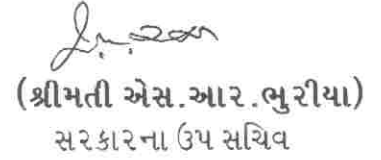 (શ્રીમતી એસ.આર.ભુરીયા)
સરકારના ઉપ સચિવ